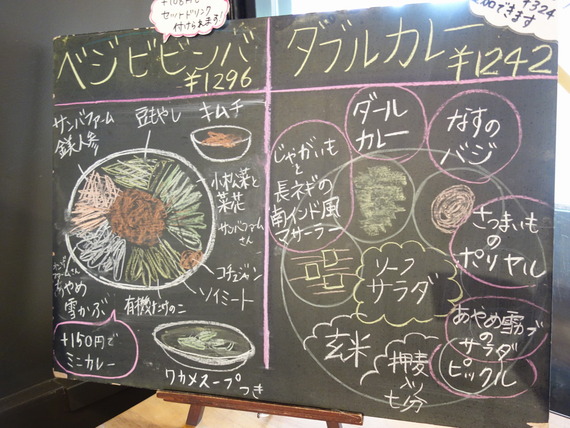 +108円で
セットドリンク
付けられます!
ベジビビンバ
¥1296
サンバファーム
鎌人参
豆もやし
キムチ
小松菜と
菜花
サンバファーム
さん
コチュジャン
ソイミート
有機たけのこ
あやめ
雪かぶ
+150円で
ミニカレー
ワカメスープつき
+324
できます
ダブルカレー
¥1242
ダール
カレー
なすの
バジ
じゃがいも
と
長ネギの
南インド風
マサーラー
さつまいも
の
ポリヤル
ソーフ
サラダ
あやめ雪かぶ
の
サラダ
ピックル
玄米
押麦
入り
七分